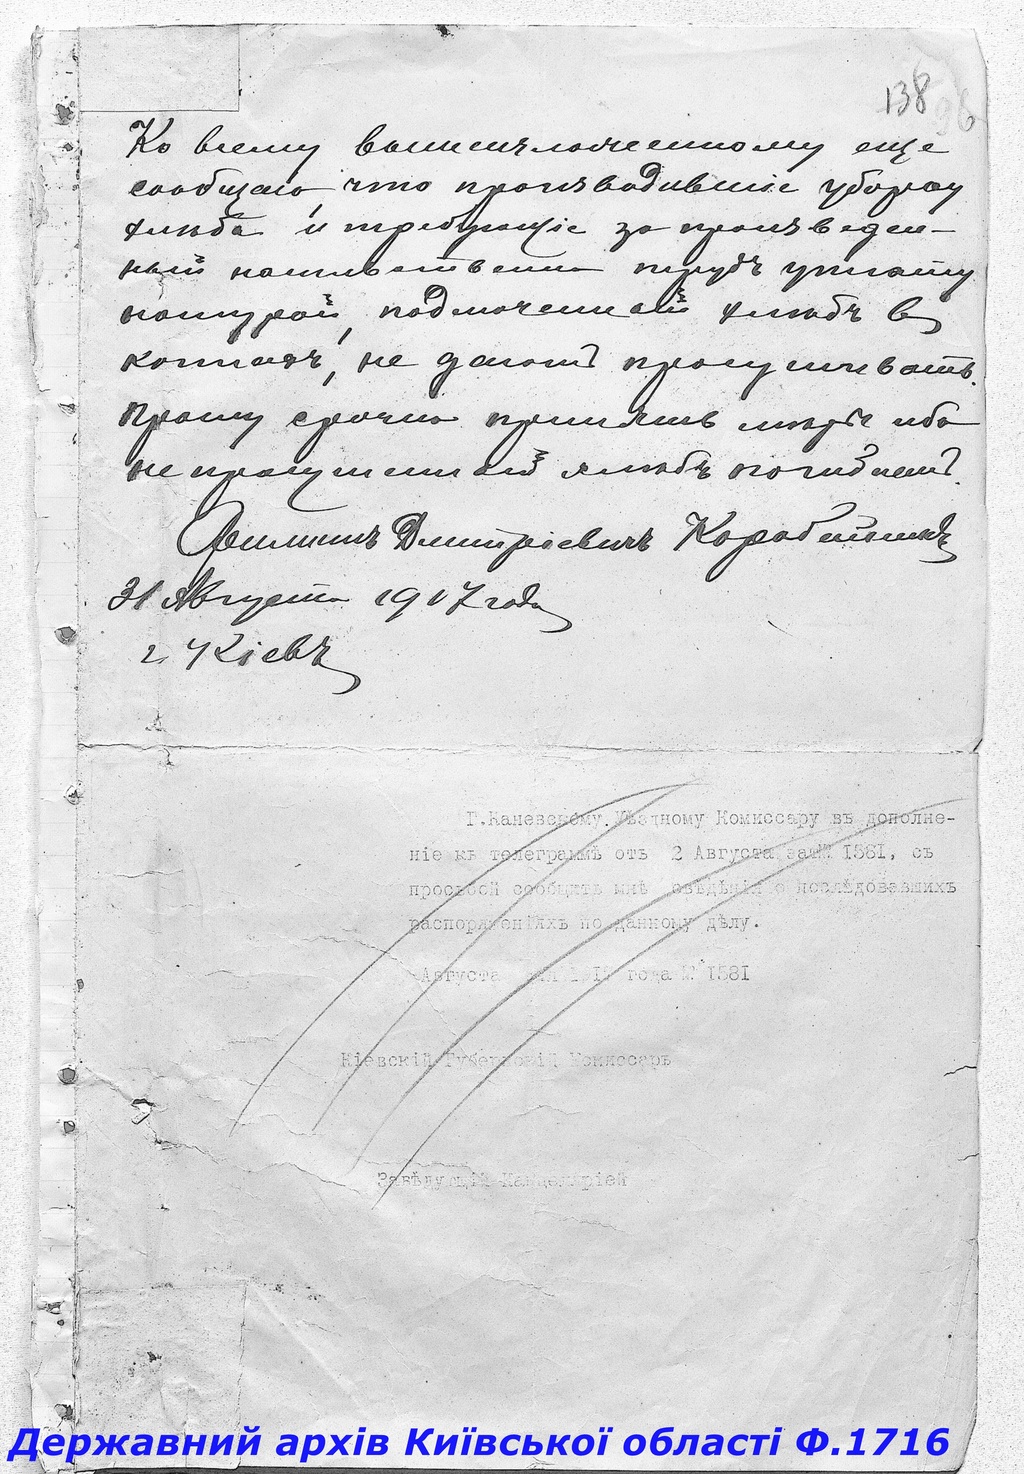 138
98
Ко всему вышеизложенному еще
сообщаю, что производившіе уборку
хлѣба и требующіе за произведен-
ный насильственно трудъ уплату
натурой, подмоченный хлѣбъ в
копнахъ, не даютъ просушивать.
Прошу срочно принять мѣры ибо
не просушенный хлѣбъ погибнетъ.
Филиппъ Дмитріевичъ Коробейникъ
31 Августа 1917 года
г. Кіевъ
Г.Каневскому Уѣздному Комиссару въ дополне-
ніе къ телеграммѣ отъ 2 Августа за № 1581, съ
просьбой сообщить мнѣ свѣдѣнія о послѣдовавшихъ
распоряженіяхъ по данному дѣлу.
Августа года № 1581
Кіевскій Губернскій Комиссаръ
Завѣдующій Канцеляріей
Державний архів Київської області Ф.1716